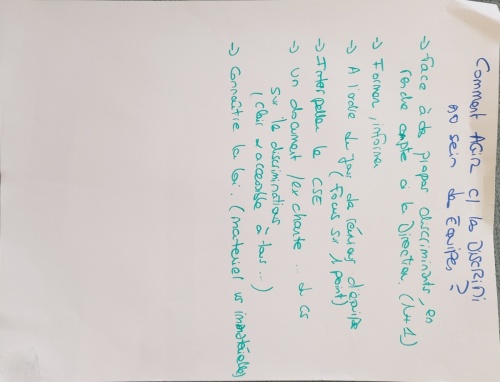 Comment AGIR c/ la DISCRIMI
au sein des Equipes ?
→ Face à des propos discriminants, en
rendre compte à la Direction. (N+1)
→ Former, informer
→ A l'ordre du jour de réunions d'équipe
(Focus sur 1 point)
→ Interpeller le CSE
→ un document / ex charte ...
sur la discrimination
(clair & accessible à tous ...)
→ Connaître la loi. (matériel vs immatérielle)